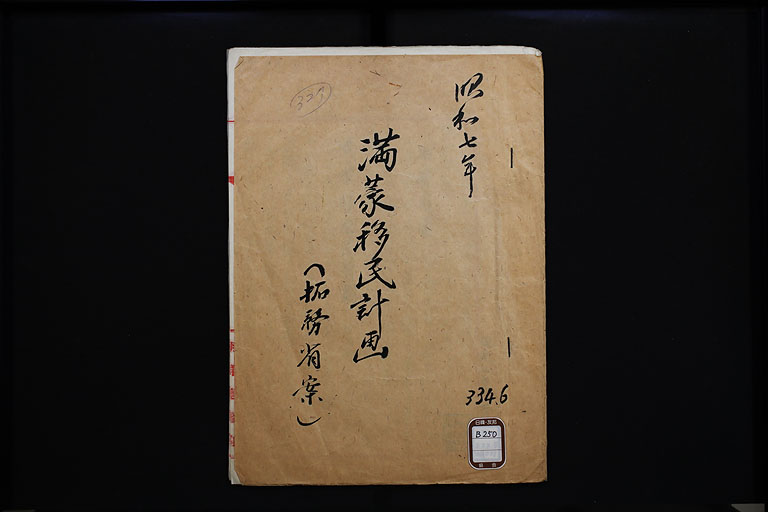 昭和七年
満蒙移民計画
（拓務省案）
337
334.6
B250